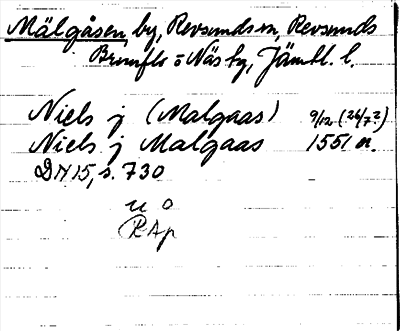 Mälgåsen by, Revsunds sn, Revsunds
Brunflo o Näs tg, Jämtl. l.
Niels j (Malgaas) 9/12 (26/7?)
Niels j Malgaas 1551 or.
DN 15, s. 730
u o
RAp